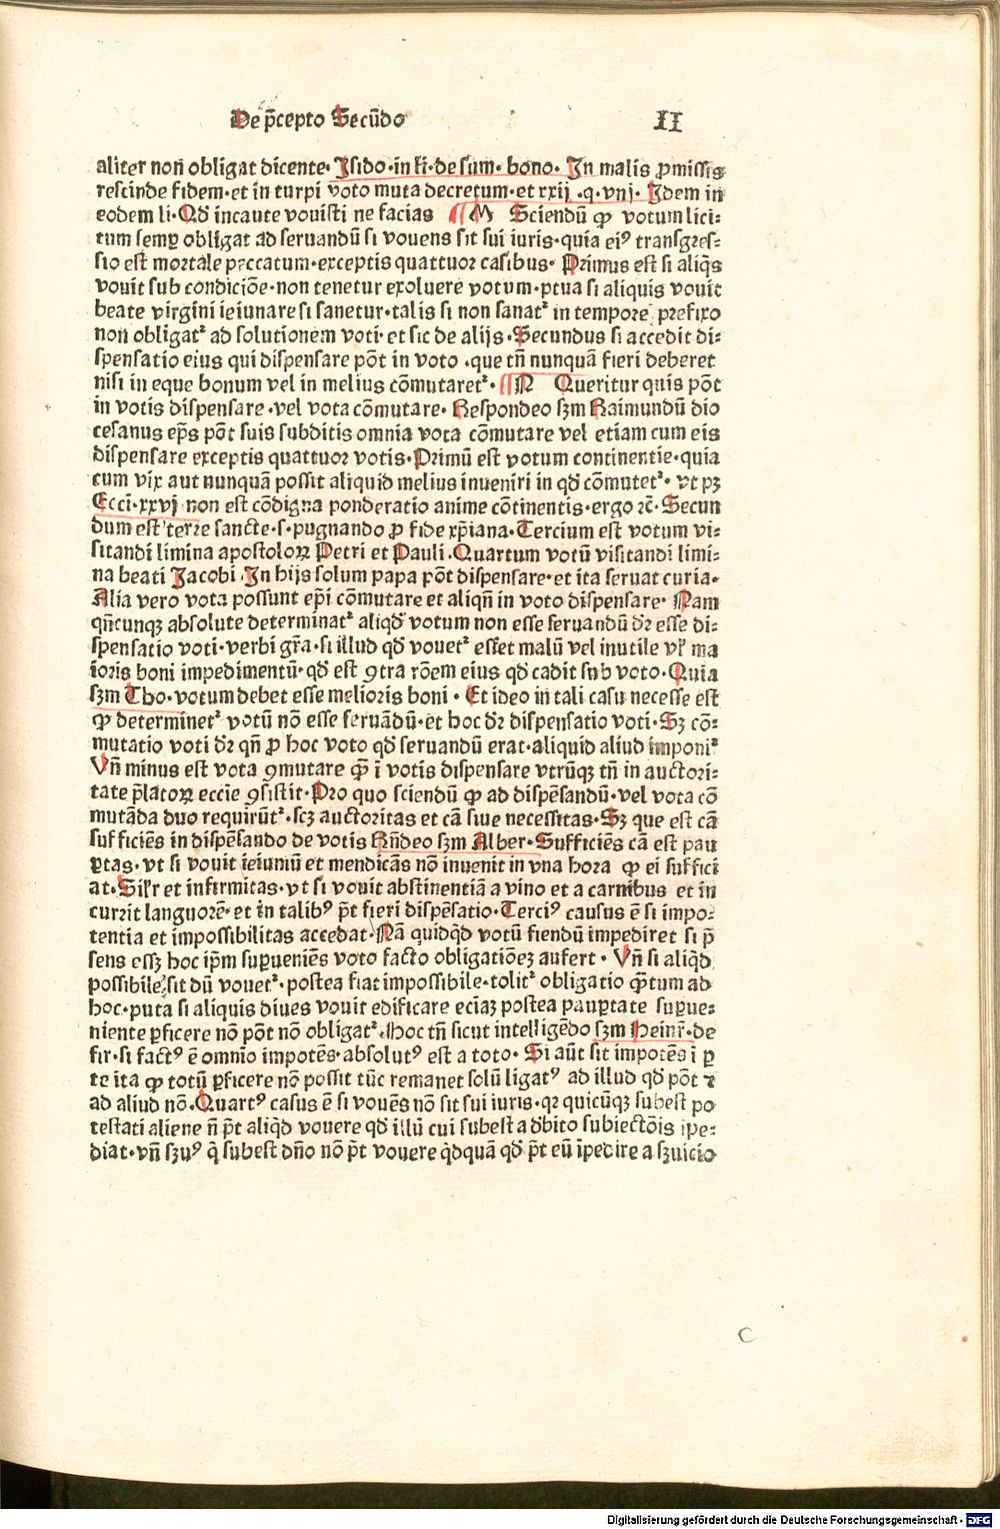 De p̄cepto Secūdo II
aliter non obligat dicente· Isido·in li·de sum· bono· In malis ꝓmissis
rescinde fidem·et in turpi voto muta decretum·et xxij ·q·vnj· Idem in
eodem li·Qd̄ incaute vouisti ne facias ¶ M Sciendū ꝙ votum lici⸗
tum semꝑ obligat ad seruandū si vouens sit sui iuris·quia eiꝰ transgres⸗
sio est mortale peccatum·exceptis quattuor casibus· Primus est si aliq̄s
vouit sub condiciōe·non tenetur exoluere votum·ptua si aliquis vouit
beate virgini ieiunare si sanetur·talis si non sanat᷑ in tempore prefixo
non obligat᷑ ad solutionem voti·et sic de alijs·Secundus si accedit di⸗
spensatio eius qui dispensare pōt in voto ·que tn̄ nunquā fieri deberet
nisi in eque bonum vel in melius cōmutaret᷑· ¶ N Queritur quis pōt
in votis dispensare ·vel vota cōmutare· Respondeo sꝫm Raimundū dio
cesanus ep̄s pōt suis subditis omnia vota cōmutare vel etiam cum eis
dispensare exceptis quattuor votis·Primū est votum continentie·quia
cum vix aut nunquā possit aliquid melius inueniri in qd̄ cōmutet᷑· vt pꝫ
Ecci·xxvj non est cōdigna ponderatio anime cōtinentis·ergo ⁊c̄·Secun
dum est terre sancte·s·pugnando ꝓ fide xp̄iana·Tercium est votum vi⸗
sitandi limina apostoloꝝ Petri et Pauli·Quartum votū visitandi limi⸗
na beati Jacobi·In hijs solum papa pōt dispensare·et ita seruat curia·
Alia vero vota possunt ep̄i cōmutare et aliqn̄ in voto dispensare· Nam
qn̄cunqꝫ absolute determinat᷑ aliqd̄ votum non esse seruandū dr̄ esse di⸗
spensatio voti·verbi gr̄a·si illud qd̄ vouet᷑ esset malū vel inutile vl̓ ma
ioris boni impedimentū·qd̄ est ꝯtra rōem eius qd̄ cadit sub voto·Quia
sꝫm Tho·votum debet esse melioris boni · Et ideo in tali casu necesse est
ꝙ determinet᷑ votū nō esse seruādū·et hoc dr̄ dispensatio voti·Sꝫ cō⸗
mutatio voti dr̄ qn̄ ꝓ hoc voto qd̄ seruandū erat·aliquid aliud imponi᷑
Vn̄ minus est vota ꝯmutare ꝙ̄ ī votis dispensare vtrūqꝫ tn̄ in auctori⸗
tate p̄latoꝝ eccīe ꝯsistit·Pro quo sciendū ꝙ ad dispēsandū·vel vota cō
mutāda duo requirūt᷑·scꝫ auctoritas et cā siue necessitas·Sꝫ que est cā
sufficiēs in dispēsando de votis Rn̄deo sꝫm Alber·Sufficiēs cā est pau
ꝑtas·vt si vouit ieiuniū et mendicās nō inuenit in vna hora ꝙ ei suffici
at·Sil̓r et infirmitas·vt si vouit abstinentiā a vino et a carnibus et in
currit languorē·et in talibꝰ p̄t fieri dispēsatio·Terciꝰ causus ē si impo⸗
tentia et impossibilitas accedat·Nā quidqd̄ votū fiendū impediret si p̄
sens essꝫ hoc ip̄m suꝑueniēs voto facto obligatiōeꝫ aufert· Vn̄ si aliqd̄
possibile sit dū vouet᷑·postea fiat impossibile·tolit᷑ obligatio ꝙ̄tum ad
hoc·puta si aliquis diues vouit edificare ecīaꝫ postea pauꝑtate suꝑue⸗
niente ꝑficere nō pōt nō obligat᷑·Hoc tn̄ sicut intelligēdo sꝫm Heinr̄·de
fir·si factꝰ ē omnio impotēs·absolutꝰ est a toto· Si aūt sit impotēs ī ꝑ
te ita ꝙ totū ꝑficere nō possit tūc remanet solū ligatꝰ ad illud qd̄ pōt ⁊
ad aliud nō·Quartꝰ casus ē si vouēs nō sit sui iuris·qꝛ quicūqꝫ subest po
testati aliene n̄ p̄t aliqd̄ vouere qd̄ illū cui subest a dbito subiectōis īpe⸗
diat·vn̄ sꝫuꝰ q̄ subest dn̄o nō p̄t vouere qd̄quā qd̄ p̄t eū īpedire a sꝫuicio
C
Digitalisierung gefördert durch die Deutsche Forschungsgemeinschaft · DFG